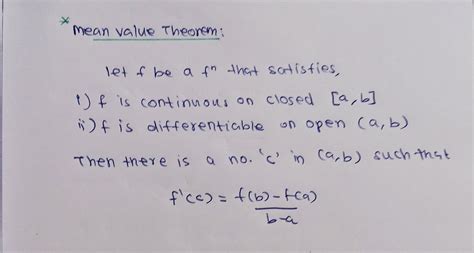 * Mean Value Theorem:
let f be a fⁿ that satisfies,
i) f is continuous on closed [a,b]
ii) f is differentiable on open (a,b)
Then there is a no. 'c' in (a,b) such that
f'(c) = f(b)-f(a)
b-a